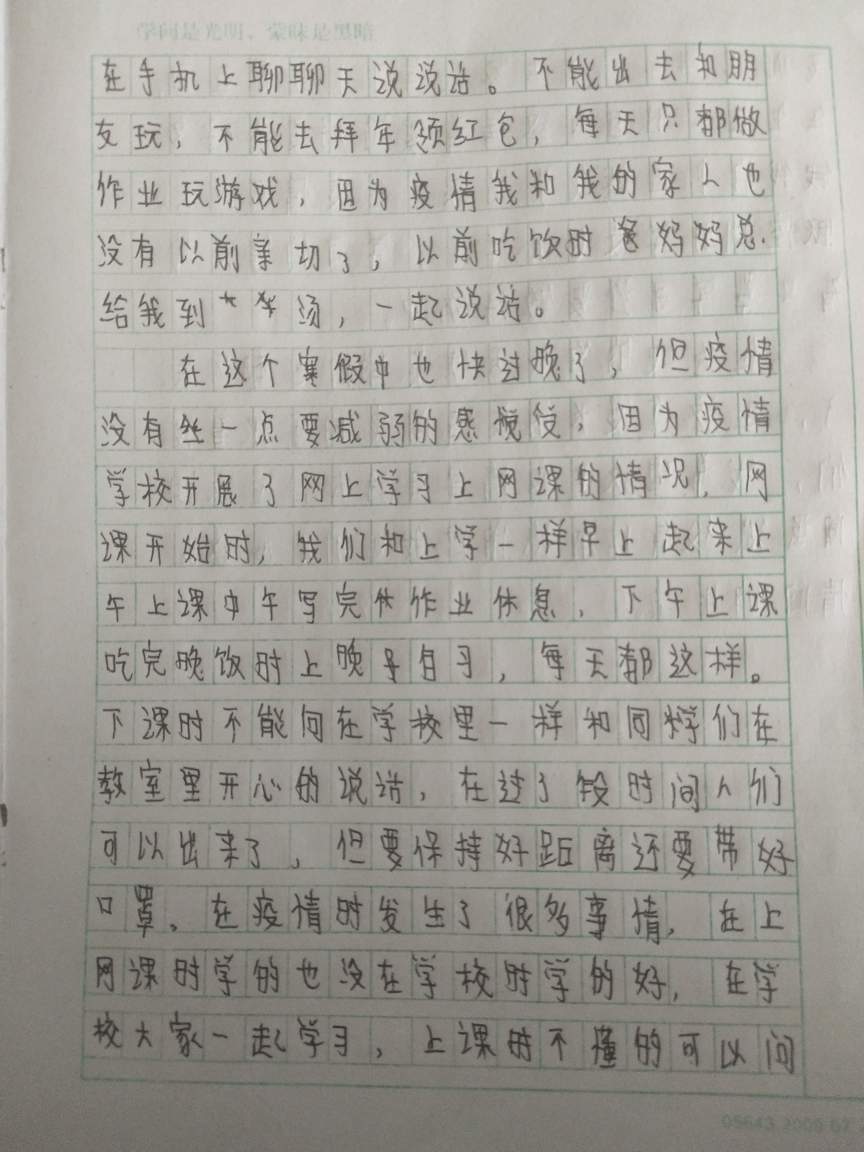 学问是光明，蒙昧是黑暗
在手机上聊聊天说说话。不能出去和朋
友玩，不能去拜年领红包，每天只都做
作业玩游戏，因为疫情我和我的家人也
没有以前亲切了，以前吃饮时爸妈妈总.
给我到汤，一起说话。
在这个寒假中也快过晚了，但疫情
没有丝一点要减弱的感觉，因为疫情
学校开展了网上学习上网课的情况，网
课开始时，我们和上学一样早上起来上
午上课中午写完休作业休息，下午上课
吃完晚饮时上晚自习，每天都这样。
下课时不能向在学校里一样和同学们在
教室里开心的说话，在过了段时间人们
可以出来了，但要保持好距离还要带好
口罩。在疫情时发生了很多事情，在上
网课时学的也没在学校时学的好，在学
校大家一起学习，上课时不懂的可以问